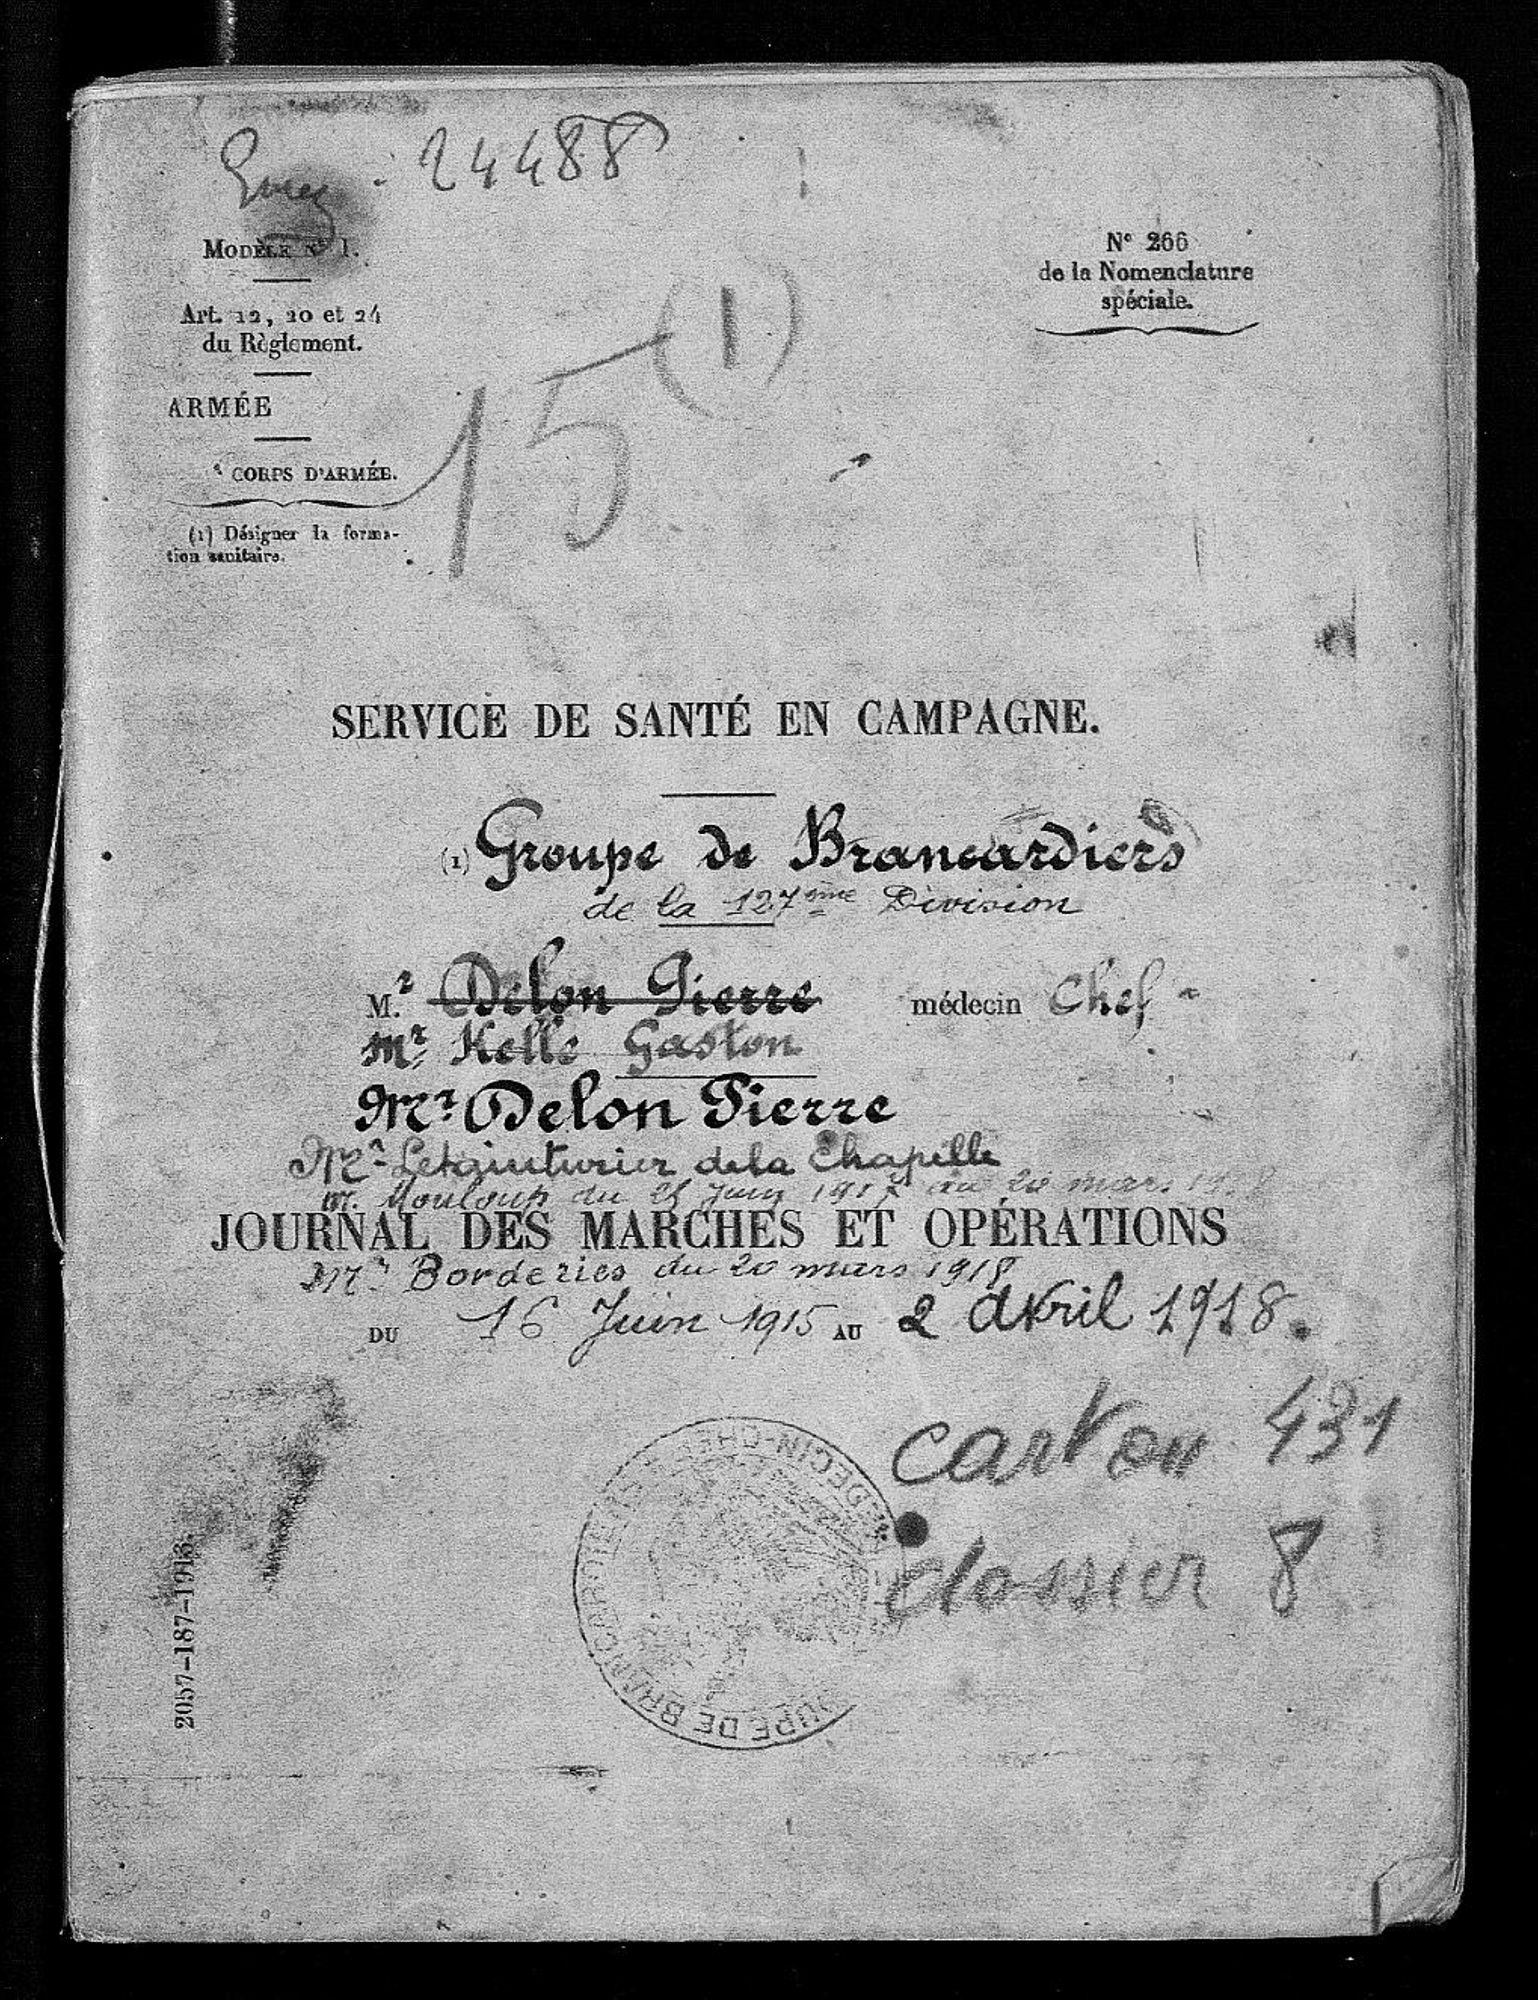 24488
MODÈLE N° 1.
N° 266
de la Nomenclature
spéciale.
Art. 12, 20 et 24
du Règlement.
ARMÉE
CORPS D'ARMÉE.
(1) Désigner la forma-
tion sanitaire.
15 (1)
SERVICE DE SANTÉ EN CAMPAGNE.
(1) Groupe de Brancardiers
de la 127ème Division
M.r Delon Pierre médecin Chef
Mr Kelle Gaston
Mr Delon Pierre
Mr Letainturier de la Chapelle
M. Mouloup du 25 juin 1917 au 20 mars 1918
JOURNAL DES MARCHES ET OPÉRATIONS
Mr Borderies du 20 mars 1918
DU 16 Juin 1915 AU 2 avril 1918.
carton 431
dossier 8
GROUPE DE BRANCARDIERS MÉDECIN-CHEF
2057-187-1913.